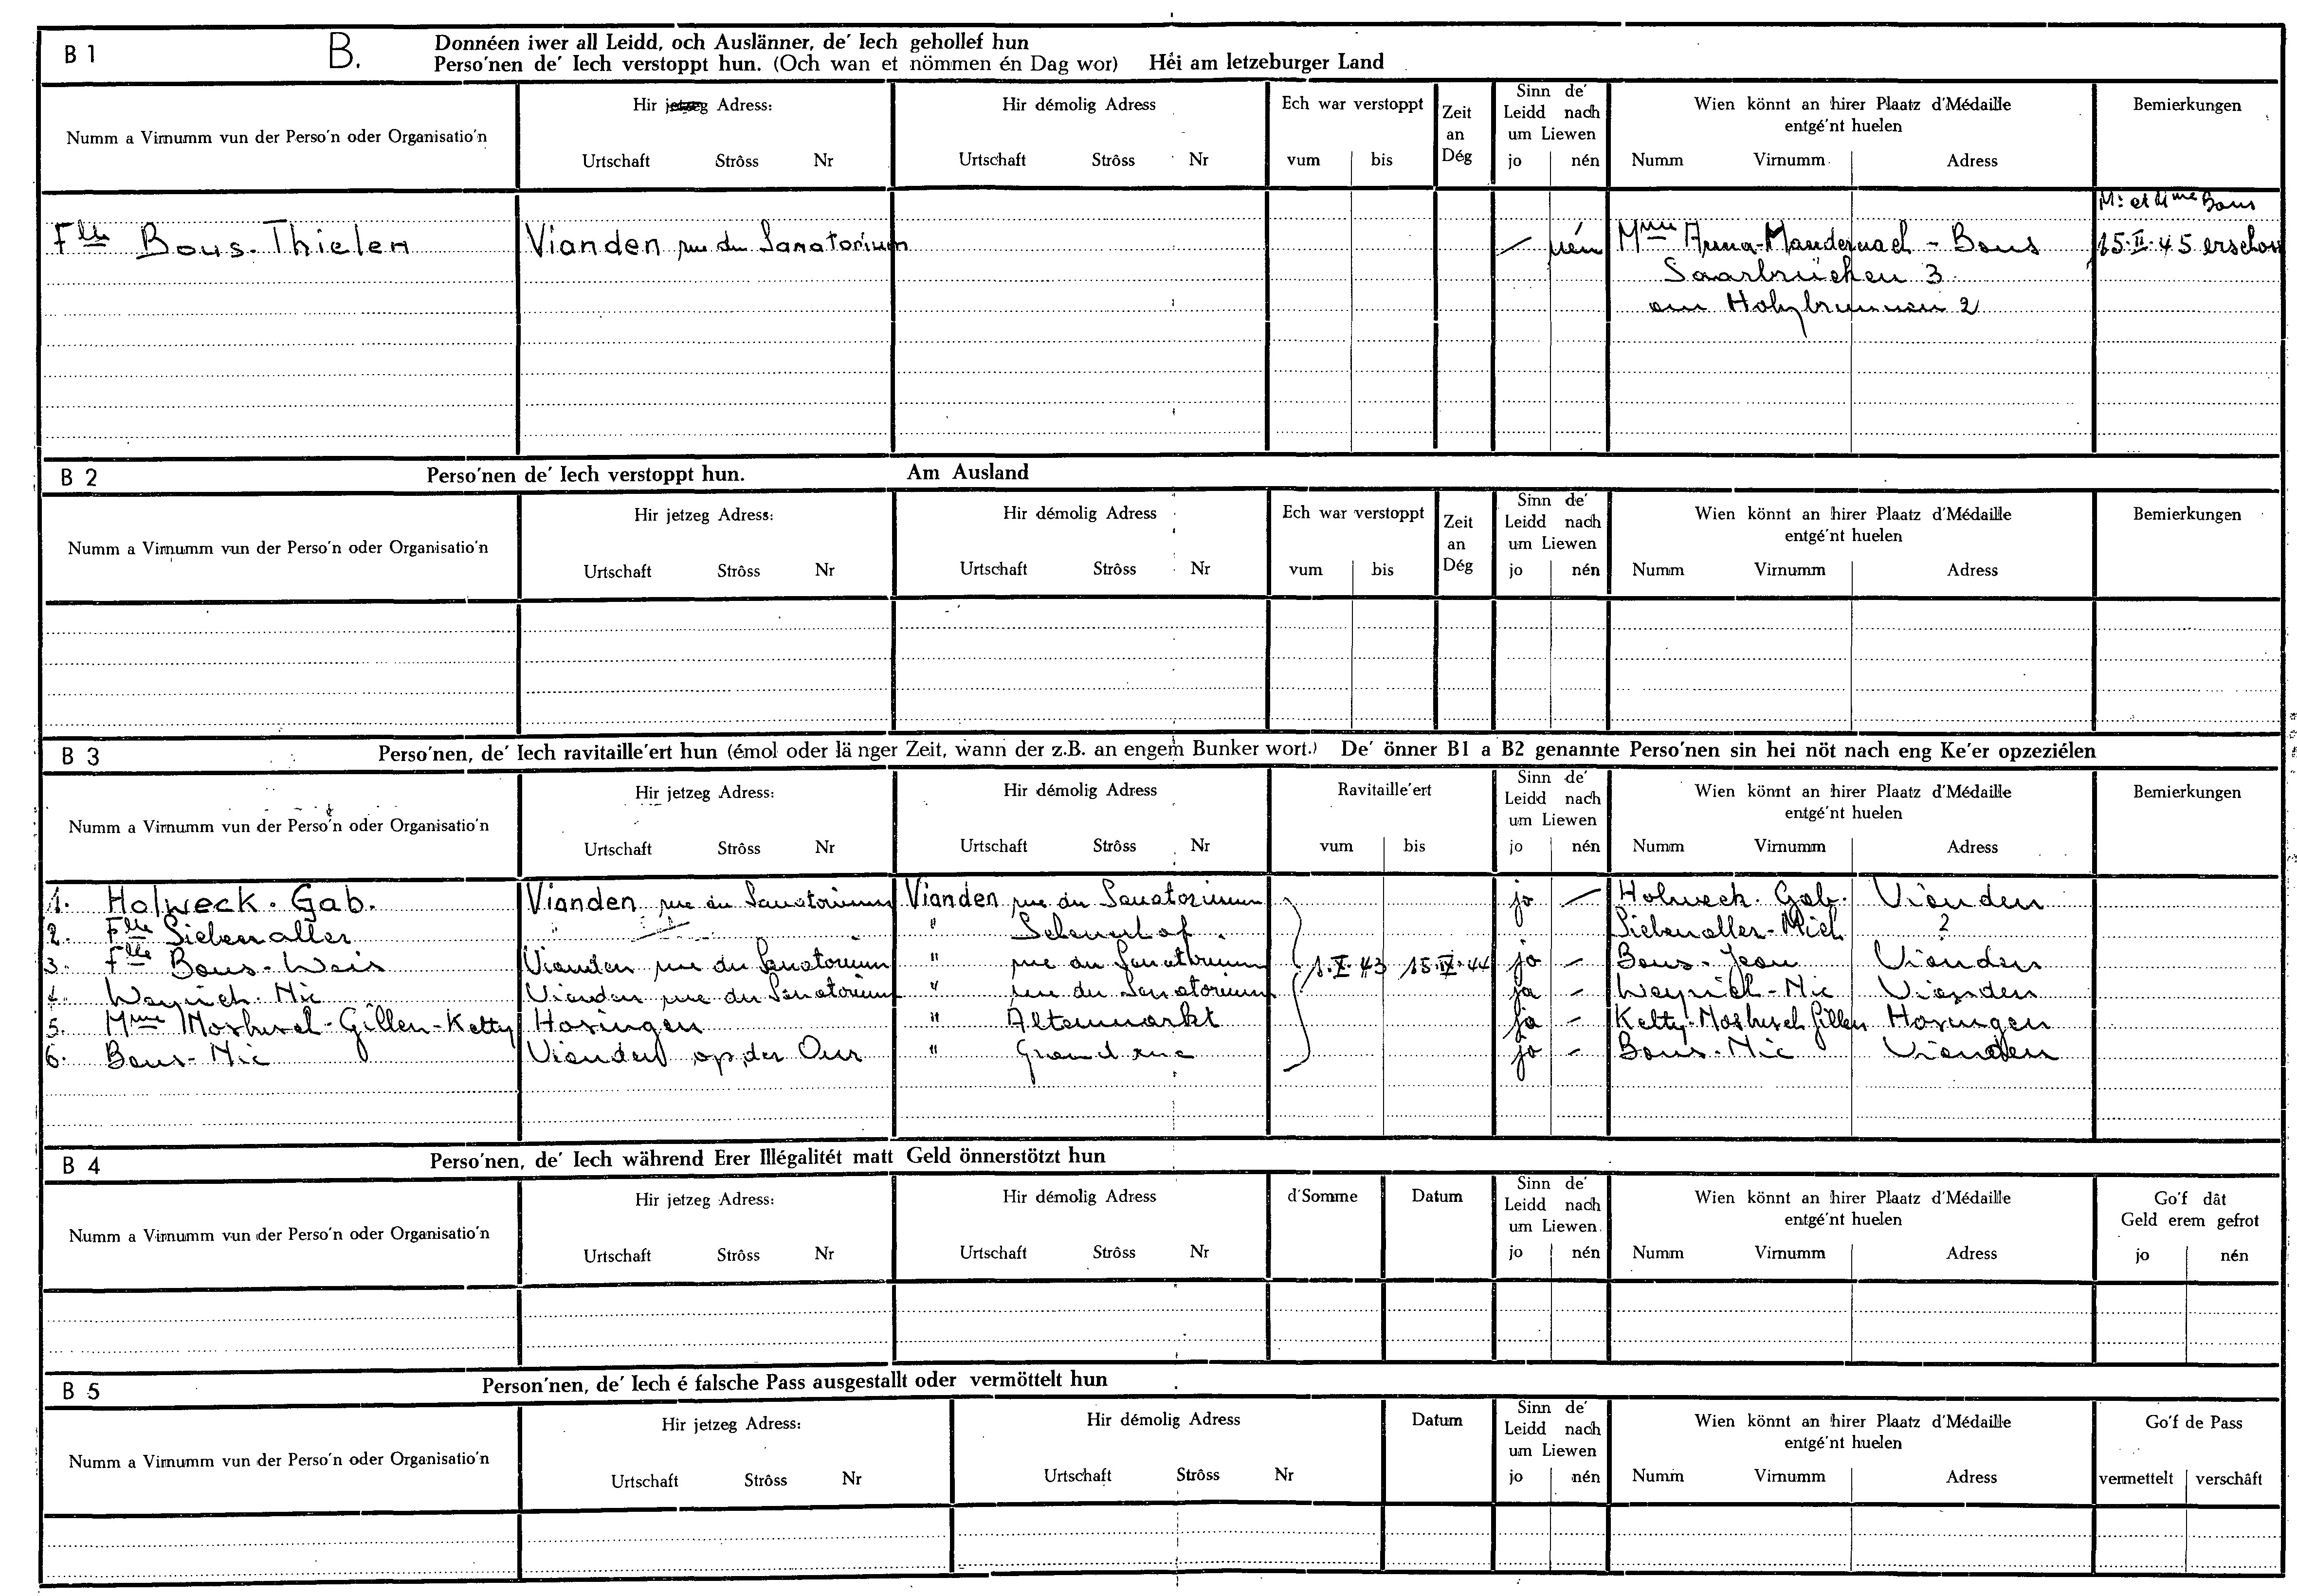 B 1 B. Donnéen iwer all Leidd, och Auslänner, de' Iech gehollef hun
Perso'nen de' Iech verstoppt hun. (Och wan et nömmen én Dag wor) Héi am letzeburger Land
Numm a Virnumm vun der Perso'n oder Organisatio'n
Hir jetzeg Adress:
Urtschaft Strôss Nr
Hir démolig Adress
Urtschaft Strôss Nr
Ech war verstoppt
vum bis
Zeit
an
Dég
Sinn de'
Leidd nach
um Liewen
jo nén
Wien könnt an hirer Plaatz d'Médaille
entgé'nt huelen
Numm Virnumm Adress
Bemierkungen
Mr et Mme Bous
Flle Bous-Thielen Vianden rue du Sanatorium — nén Mme Anna-Mandernach-Bous 15.II.45 erschoss
Saarbrücken 3
am Holzbrunnen 2
B 2 Perso'nen de' Iech verstoppt hun. Am Ausland
Numm a Virnumm vun der Perso'n oder Organisatio'n
Hir jetzeg Adress:
Urtschaft Strôss Nr
Hir démolig Adress
Urtschaft Strôss Nr
Ech war verstoppt
vum bis
Zeit
an
Dég
Sinn de'
Leidd nach
um Liewen
jo nén
Wien könnt an hirer Plaatz d'Médaille
entgé'nt huelen
Numm Virnumm Adress
Bemierkungen
B 3 Perso'nen, de' Iech ravitaille'ert hun (émol oder länger Zeit, wann der z.B. an engem Bunker wort.) De' önner B1 a B2 genannte Perso'nen sin hei nöt nach eng Ke'er opzeziélen
Numm a Virnumm vun der Perso'n oder Organisatio'n
Hir jetzeg Adress:
Urtschaft Strôss Nr
Hir démolig Adress
Urtschaft Strôss Nr
Ravitaille'ert
vum bis
Sinn de'
Leidd nach
um Liewen
jo nén
Wien könnt an hirer Plaatz d'Médaille
entgé'nt huelen
Numm Virnumm Adress
Bemierkungen
1. Holweck. Gab. Vianden rue du Sanatorium Vianden rue du Sanatorium jo — Holweck. Gab. Vianden
2. Flle Siebenaller " Siebenaller-Mich ?
3. Flle Bous-Weis Vianden rue du Sanatorium " rue du Sanatorium 1.X.43 15.IX.44 jo - Bous-Jean Vianden
4. Weyrich-Nic Vianden rue du Sanatorium " rue du Sanatorium ja - Weyrich-Nic Vianden
5. Mme Gillen-Ketty Hosingen " Altenmarkt ja - Ketty Gillen Hosingen
6. Bous-Nic Vianden op der Our " Grand rue jo - Bous-Nic Vianden
B 4 Perso'nen, de' Iech während Erer Illégalitét matt Geld önnerstötzt hun
Numm a Virnumm vun der Perso'n oder Organisatio'n
Hir jetzeg Adress:
Urtschaft Strôss Nr
Hir démolig Adress
Urtschaft Strôss Nr
d'Somme Datum
Sinn de'
Leidd nach
um Liewen
jo nén
Wien könnt an hirer Plaatz d'Médaille
entgé'nt huelen
Numm Virnumm Adress
Go'f dât
Geld erem gefrot
jo nén
B 5 Person'nen, de' Iech é falsche Pass ausgestallt oder vermöttelt hun
Numm a Virnumm vun der Perso'n oder Organisatio'n
Hir jetzeg Adress:
Urtschaft Strôss Nr
Hir démolig Adress
Urtschaft Strôss Nr
Datum
Sinn de'
Leidd nach
um Liewen
jo nén
Wien könnt an hirer Plaatz d'Médaille
entgé'nt huelen
Numm Virnumm Adress
Go'f de Pass
vermettelt verschâft